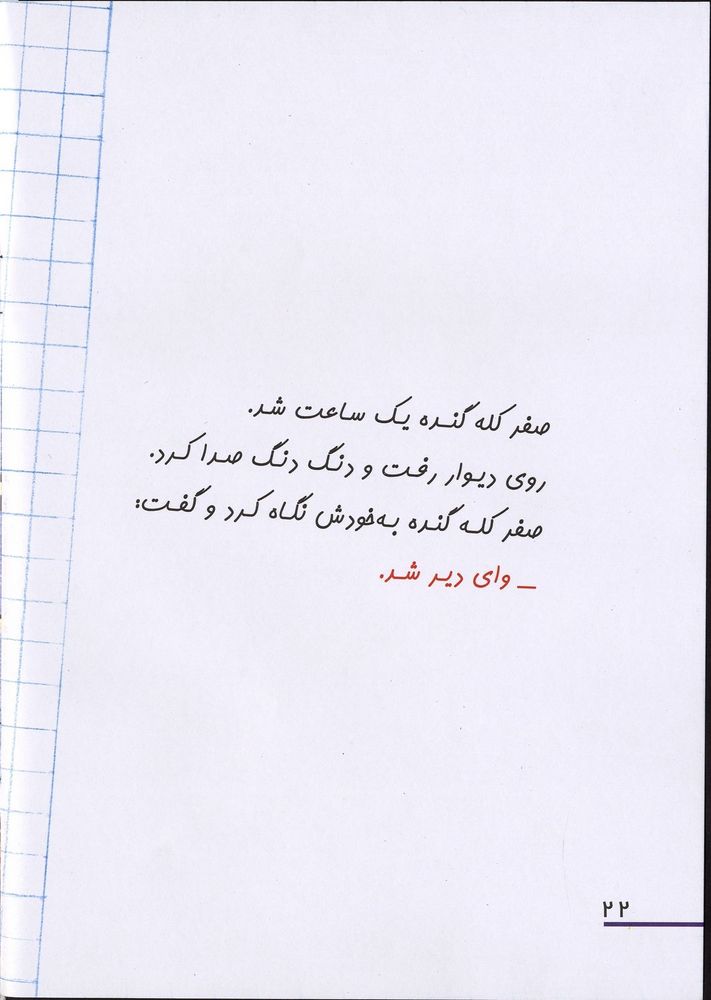 صفر کله گنده یک ساعت شد.
روی دیوار رفت و دنگ دنگ صدا کرد.
صفر کله گنده به‌خودش نگاه کرد و گفت:
_ وای دیر شد.
۲۲